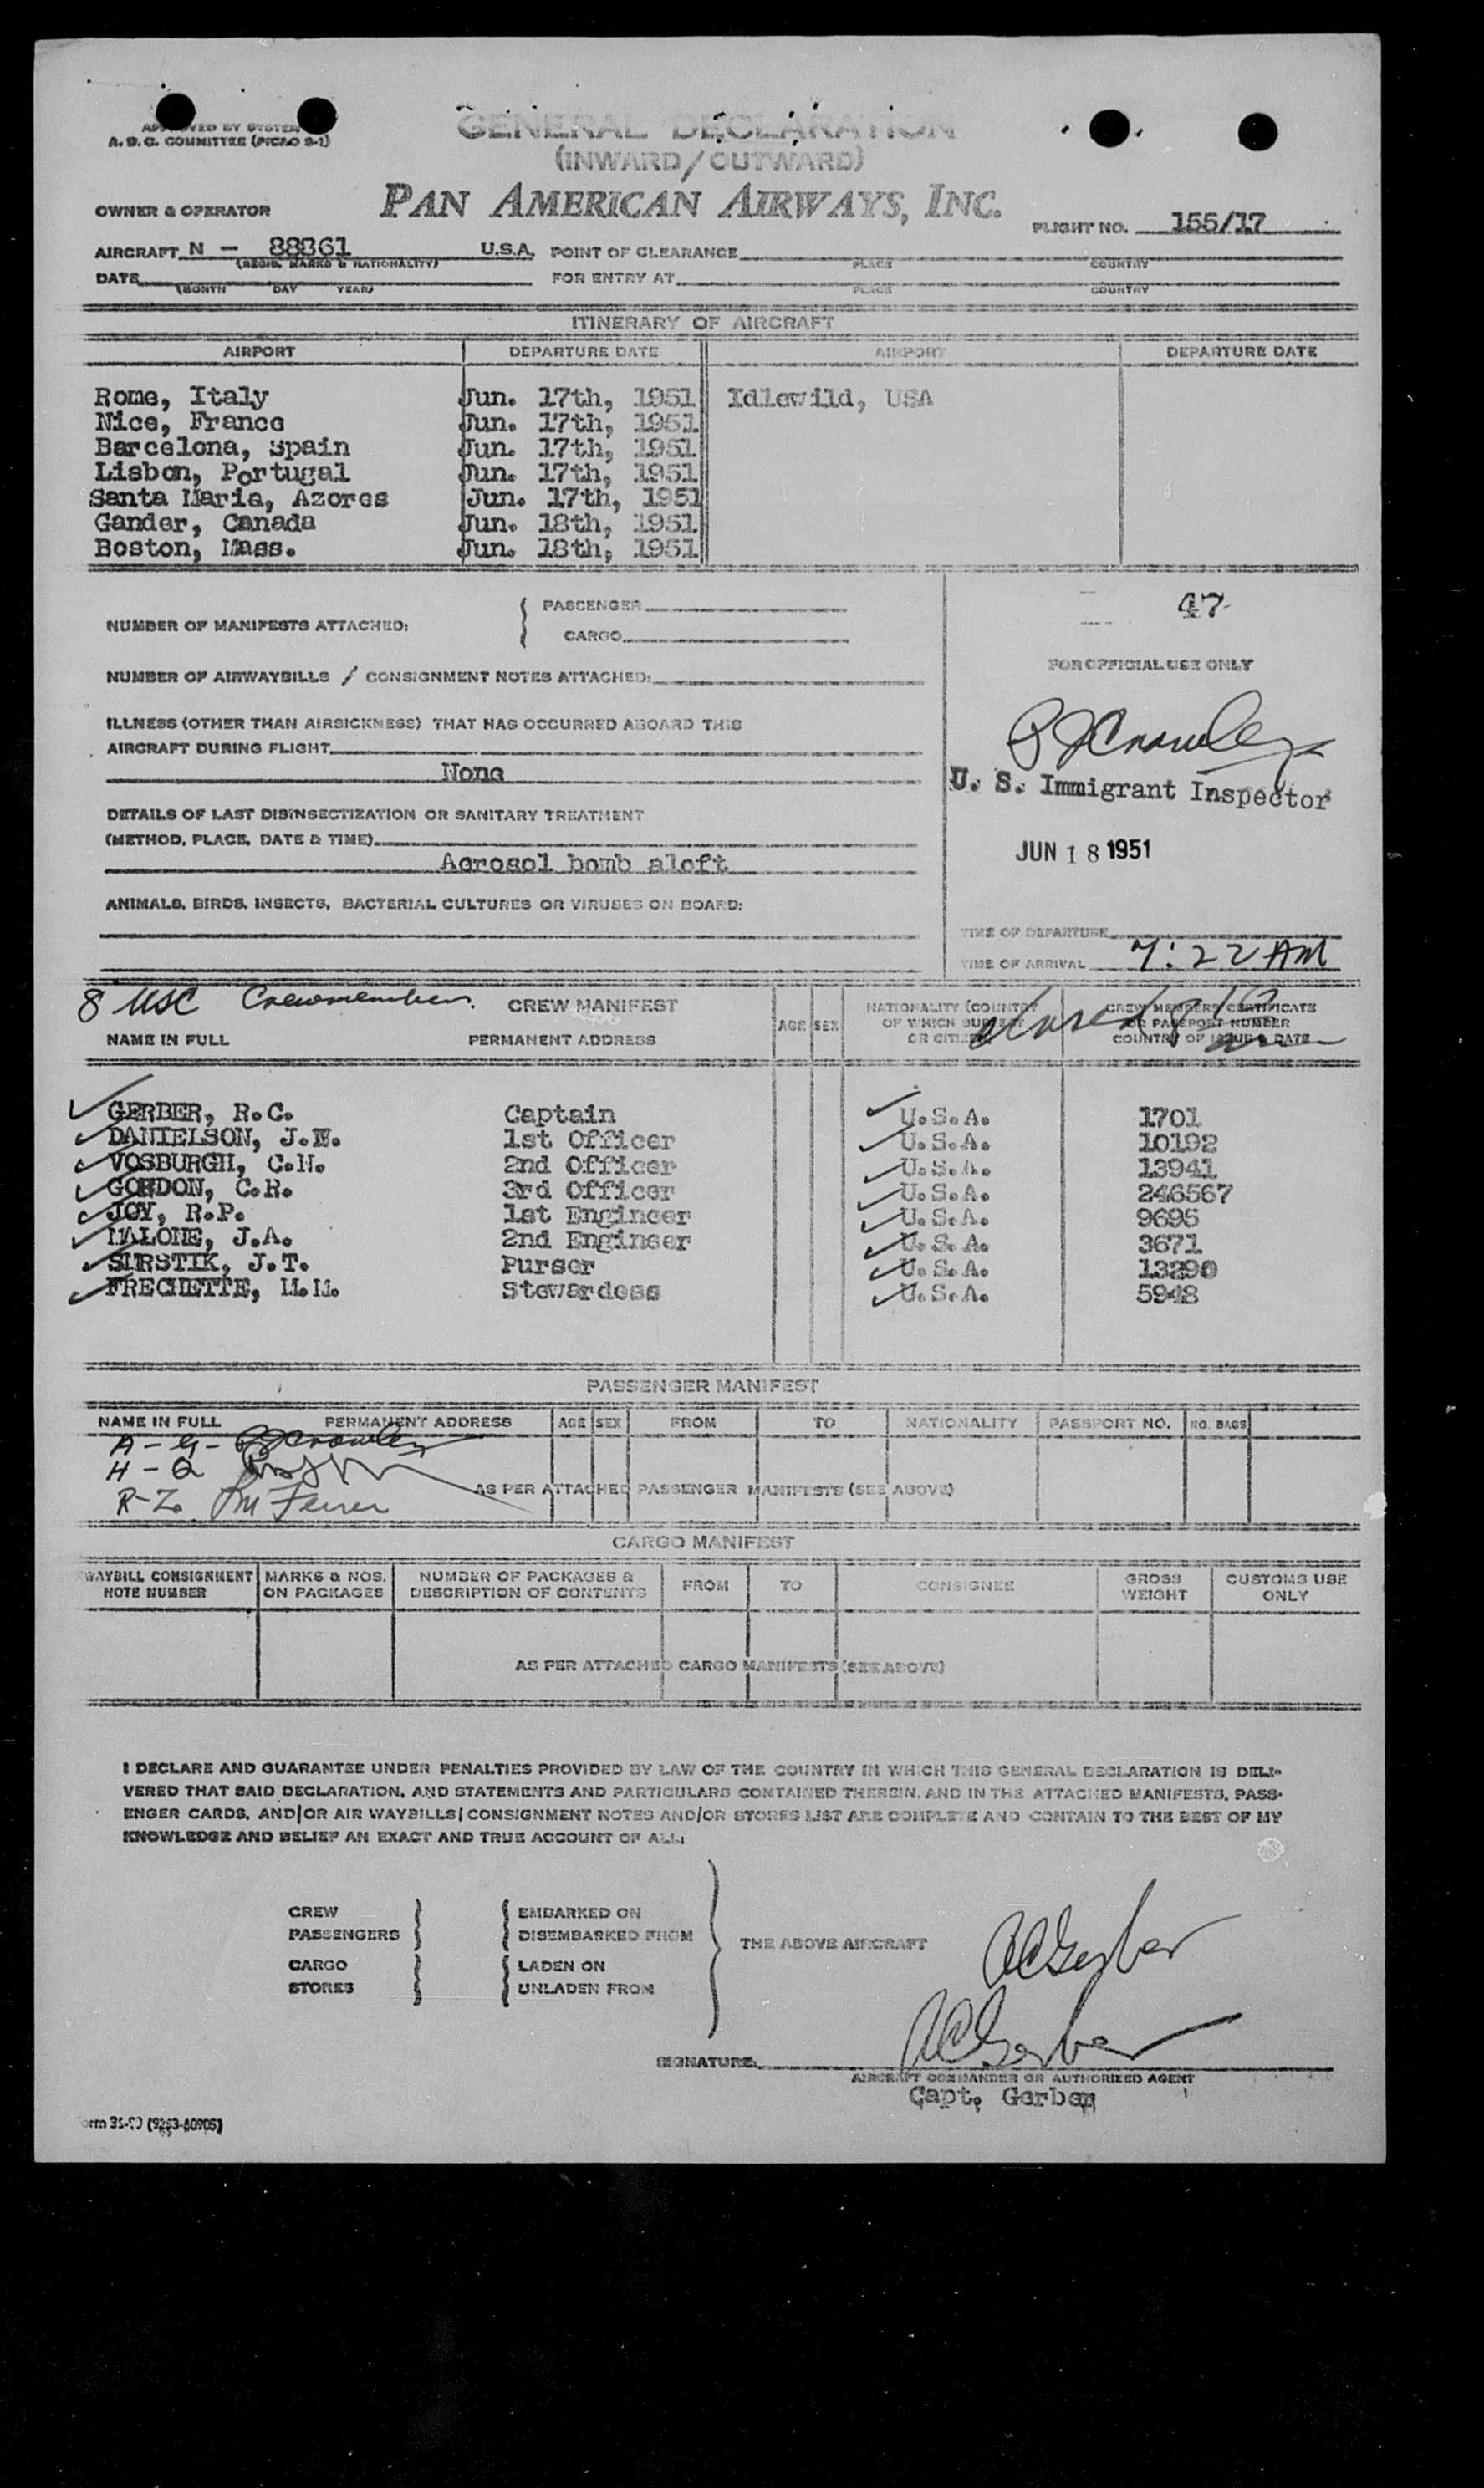 APPROVED BY SYSTEM
A. D. C. COMMITTEE (PICAO 2-1)
GENERAL DECLARATION
(INWARD/OUTWARD)
OWNER & OPERATOR PAN AMERICAN AIRWAYS, INC.
FLIGHT NO. 155/17
AIRCRAFT N - 88861 U.S.A. POINT OF CLEARANCE
(REGIS. MARKS & NATIONALITY) PLACE COUNTRY
DATE FOR ENTRY AT
(MONTH DAY YEAR) PLACE COUNTRY
ITINERARY OF AIRCRAFT
AIRPORT DEPARTURE DATE AIRPORT DEPARTURE DATE
Rome, Italy Jun. 17th, 1951 Idlewild, USA
Nice, France Jun. 17th, 1951
Barcelona, Spain Jun. 17th, 1951
Lisbon, Portugal Jun. 17th, 1951
Santa Maria, Azores Jun. 17th, 1951
Gander, Canada Jun. 18th, 1951
Boston, Mass. Jun. 18th, 1951
47
NUMBER OF MANIFESTS ATTACHED: PASSENGER
CARGO
FOR OFFICIAL USE ONLY
NUMBER OF AIRWAYBILLS / CONSIGNMENT NOTES ATTACHED:
ILLNESS (OTHER THAN AIRSICKNESS) THAT HAS OCCURRED ABOARD THIS
AIRCRAFT DURING FLIGHT
None
Crowley
U. S. Immigrant Inspector
DETAILS OF LAST DISINSECTIZATION OR SANITARY TREATMENT
(METHOD, PLACE, DATE & TIME)
JUN 18 1951
Aerosol bomb aloft
ANIMALS, BIRDS, INSECTS, BACTERIAL CULTURES OR VIRUSES ON BOARD:
TIME OF DEPARTURE
TIME OF ARRIVAL 7:22 AM
8 USC Crewmembers. CREW MANIFEST
NAME IN FULL PERMANENT ADDRESS AGE SEX NATIONALITY (COUNTRY OF WHICH SUBJECT OR CITIZEN) CREW MEMBERS CERTIFICATE OR PASSPORT NUMBER COUNTRY OF ISSUE & DATE
GERBER, R.C. Captain U.S.A. 1701
DANIELSON, J.E. 1st Officer U.S.A. 10192
VOSBURGH, C.N. 2nd Officer U.S.A. 13941
GORDON, C.R. 3rd Officer U.S.A. 246567
JOY, R.P. 1st Engineer U.S.A. 9695
MALONE, J.A. 2nd Engineer U.S.A. 3671
SURSTIK, J.T. Purser U.S.A. 13290
FRECHETTE, M.M. Stewardess U.S.A. 5948
PASSENGER MANIFEST
NAME IN FULL PERMANENT ADDRESS AGE SEX FROM TO NATIONALITY PASSPORT NO. NO. BAGS
A - G - Crowley
H - Q
R-Z
AS PER ATTACHED PASSENGER MANIFESTS (SEE ABOVE)
CARGO MANIFEST
WAYBILL CONSIGNMENT NOTE NUMBER MARKS & NOS. ON PACKAGES NUMBER OF PACKAGES & DESCRIPTION OF CONTENTS FROM TO CONSIGNEE GROSS WEIGHT CUSTOMS USE ONLY
AS PER ATTACHED CARGO MANIFESTS (SEE ABOVE)
I DECLARE AND GUARANTEE UNDER PENALTIES PROVIDED BY LAW OF THE COUNTRY IN WHICH THIS GENERAL DECLARATION IS DELI-
VERED THAT SAID DECLARATION, AND STATEMENTS AND PARTICULARS CONTAINED THEREIN, AND IN THE ATTACHED MANIFESTS, PASS-
ENGER CARDS, AND/OR AIR WAYBILLS/CONSIGNMENT NOTES AND/OR STORES LIST ARE COMPLETE AND CONTAIN TO THE BEST OF MY
KNOWLEDGE AND BELIEF AN EXACT AND TRUE ACCOUNT OF ALL:
CREW EMBARKED ON
PASSENGERS DISEMBARKED FROM
THE ABOVE AIRCRAFT RCGerber
CARGO LADEN ON
STORES UNLADEN FROM
SIGNATURE RCGerber
AIRCRAFT COMMANDER OR AUTHORIZED AGENT
Capt. Gerber